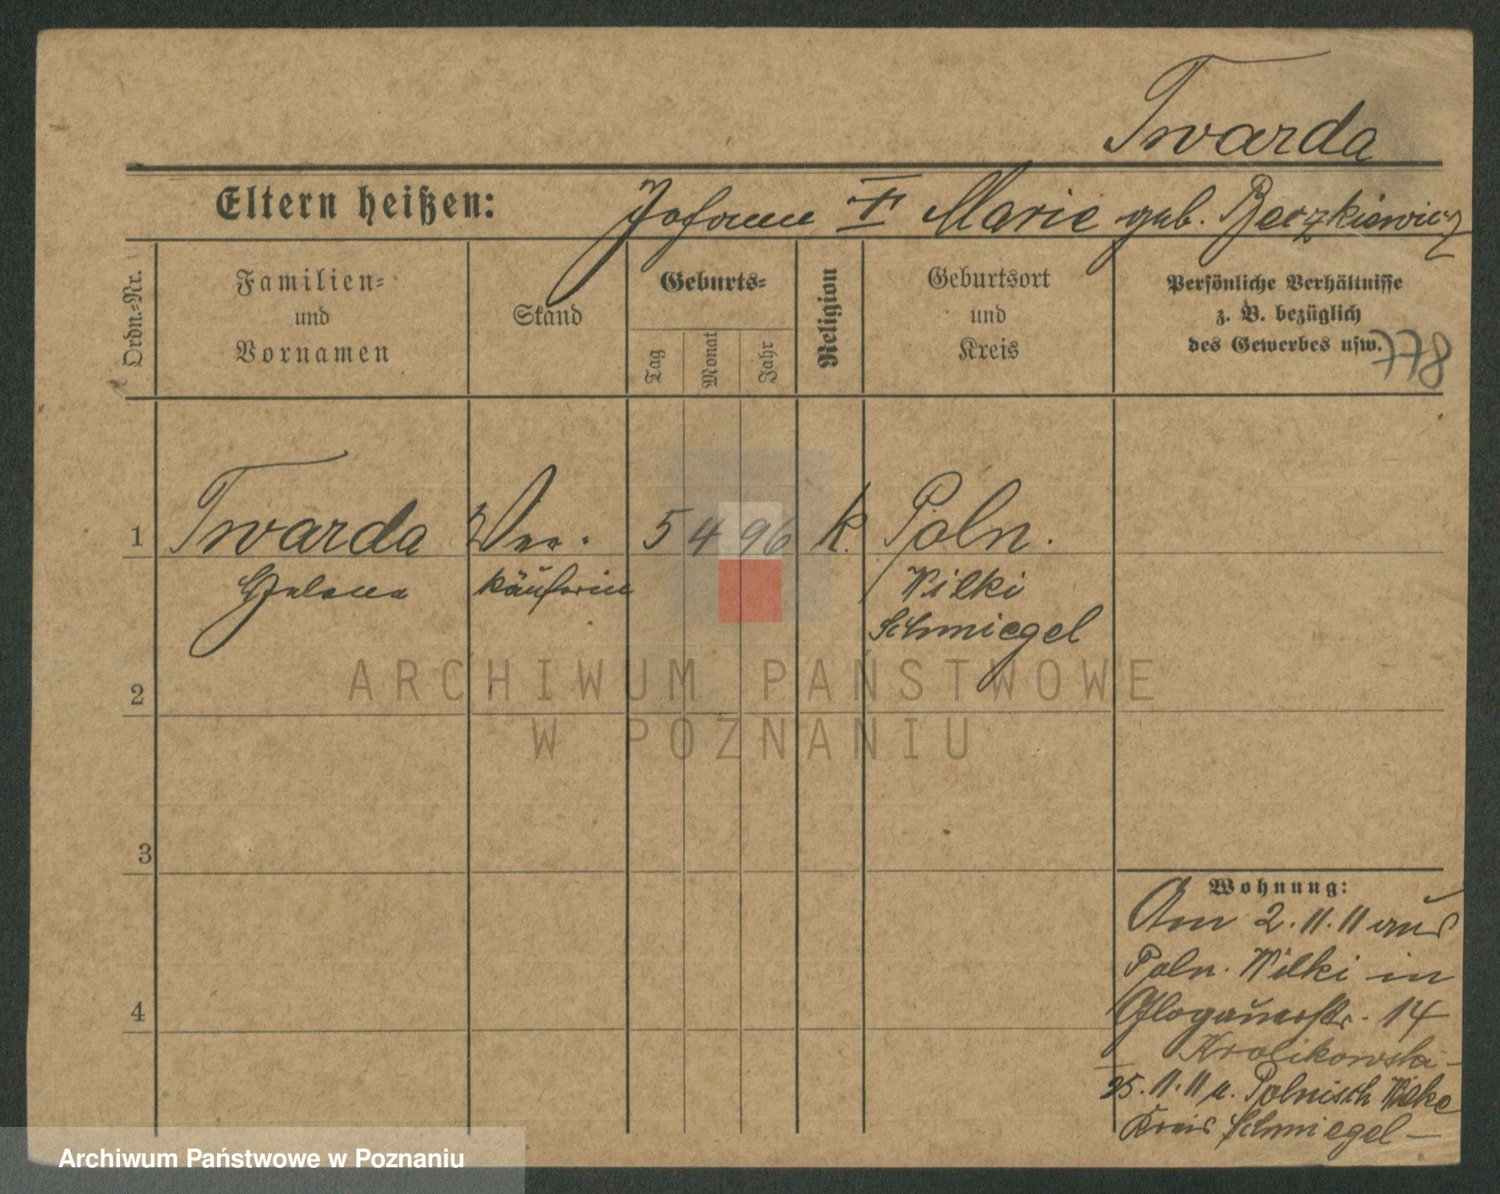 Twarda
Eltern heißen: Johann † Marie geb. Berzkiewicz
Ordn.-Nr.
Familien-
und
Vornamen
Stand
Geburts-
Tag
Monat
Jahr
Religion
Geburtsort
und
Kreis
Persönliche Verhältnisse
z. B. bezüglich
des Gewerbes usw.
778
1 Twarda Ver- 5 4 96 k. Poln.
Helene käuferin Wilki
Schmiegel
2
ARCHIWUM PAŃSTWOWE
W POZNANIU
3
Wohnung:
Am 2.11.11 aus
Poln. Wilki in
4 Glogauerstr. 14
Krolikowska-
25.11.11 n. Polnisch Wilke
Kreis Schmiegel-
Archiwum Państwowe w Poznaniu